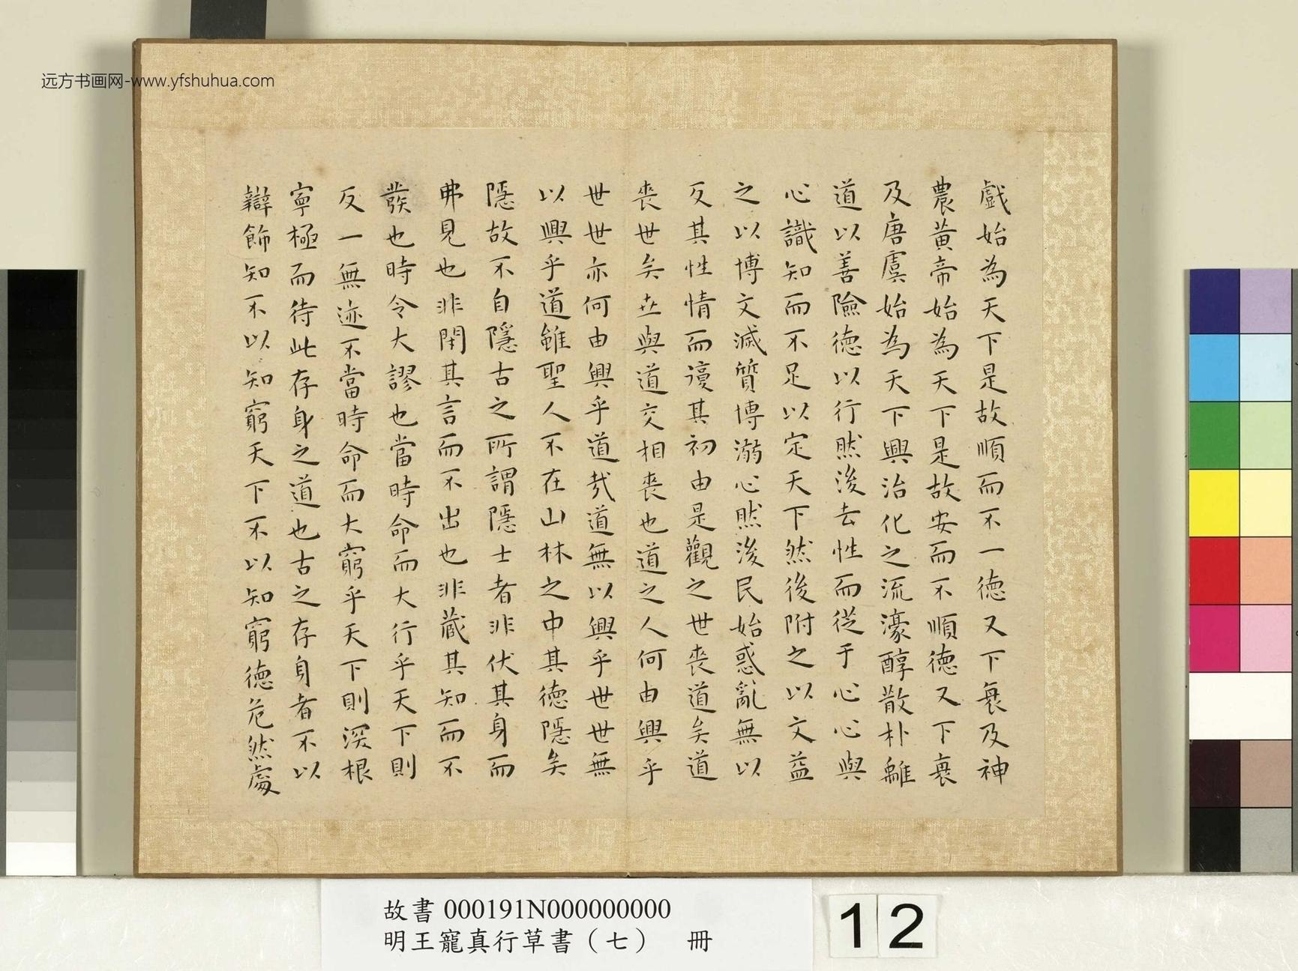 远方书画网-www.yfshuhua.com
戲始為天下是故順而不一德又下衰及神
農黃帝始為天下是故安而不順德又下衰
及唐虞始為天下興治化之流濠醇散朴離
道以善險德以行然後去性而從于心心與
心識知而不足以定天下然後附之以文益
之以博文滅質博溺心然後民始惑亂無以
反其性情而復其初由是觀之世喪道矣道
喪世矣世與道交相喪也道之人何由興乎
世世亦何由興乎道哉道無以興乎世世無
以興乎道雖聖人不在山林之中其德隱矣
隱故不自隱古之所謂隱士者非伏其身而
弗見也非閉其言而不出也非藏其知而不
發也時令大謬也當時命而大行乎天下則
反一無迹不當時命而大窮乎天下則深根
寧極而待此存身之道也古之存身者不以
辯飾知不以知窮天下不以知窮德危然處
故書 000191N000000000
明王寵真行草書（七） 冊
12